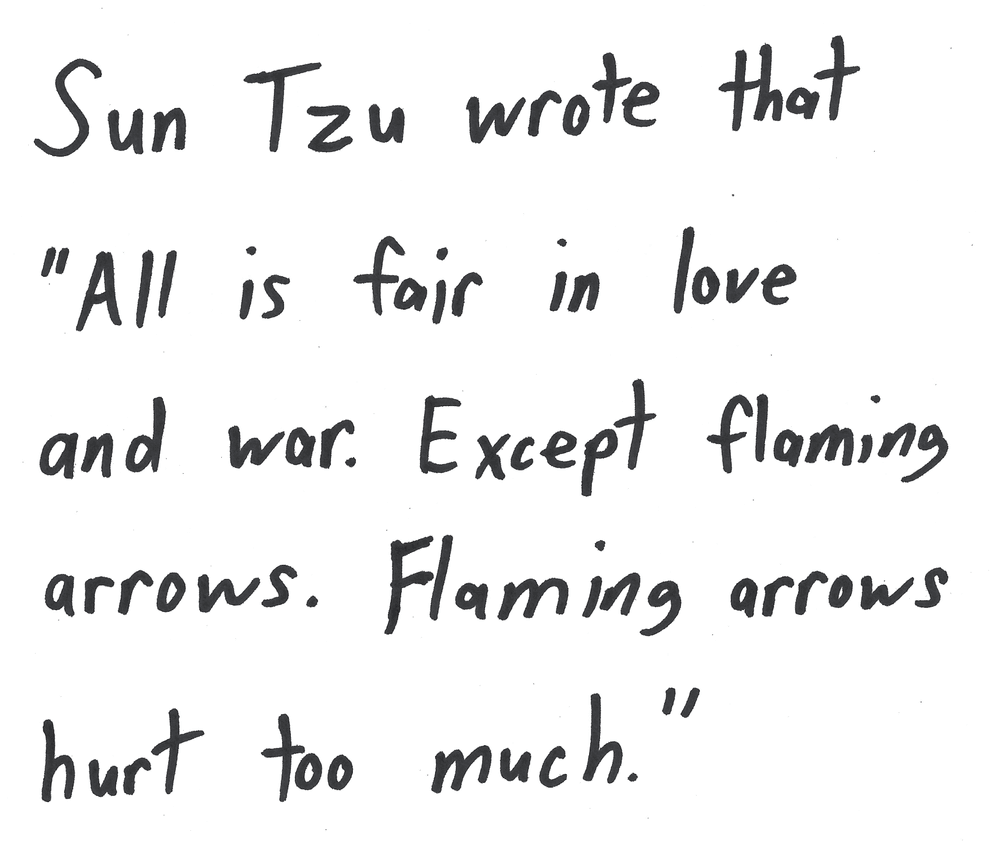 Sun Tzu wrote that
"All is fair in love
and war. Except flaming
arrows. Flaming arrows
hurt too much."